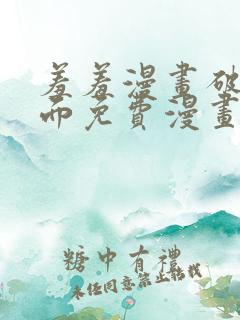 羞羞漫畫破
而免費漫畫
糖中有禮
未經同意禁止轉載